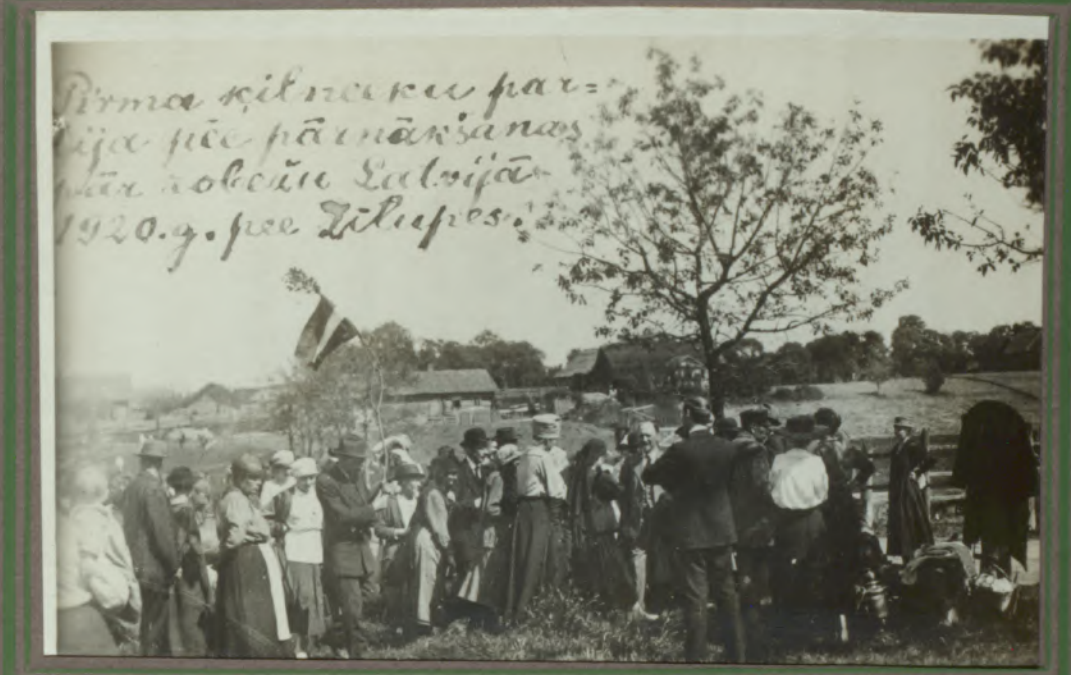 Pirma ķilneeku par=
tija pēc pārnākšanas
pār robežu Latvijā
1920.g. pee Zilupes.